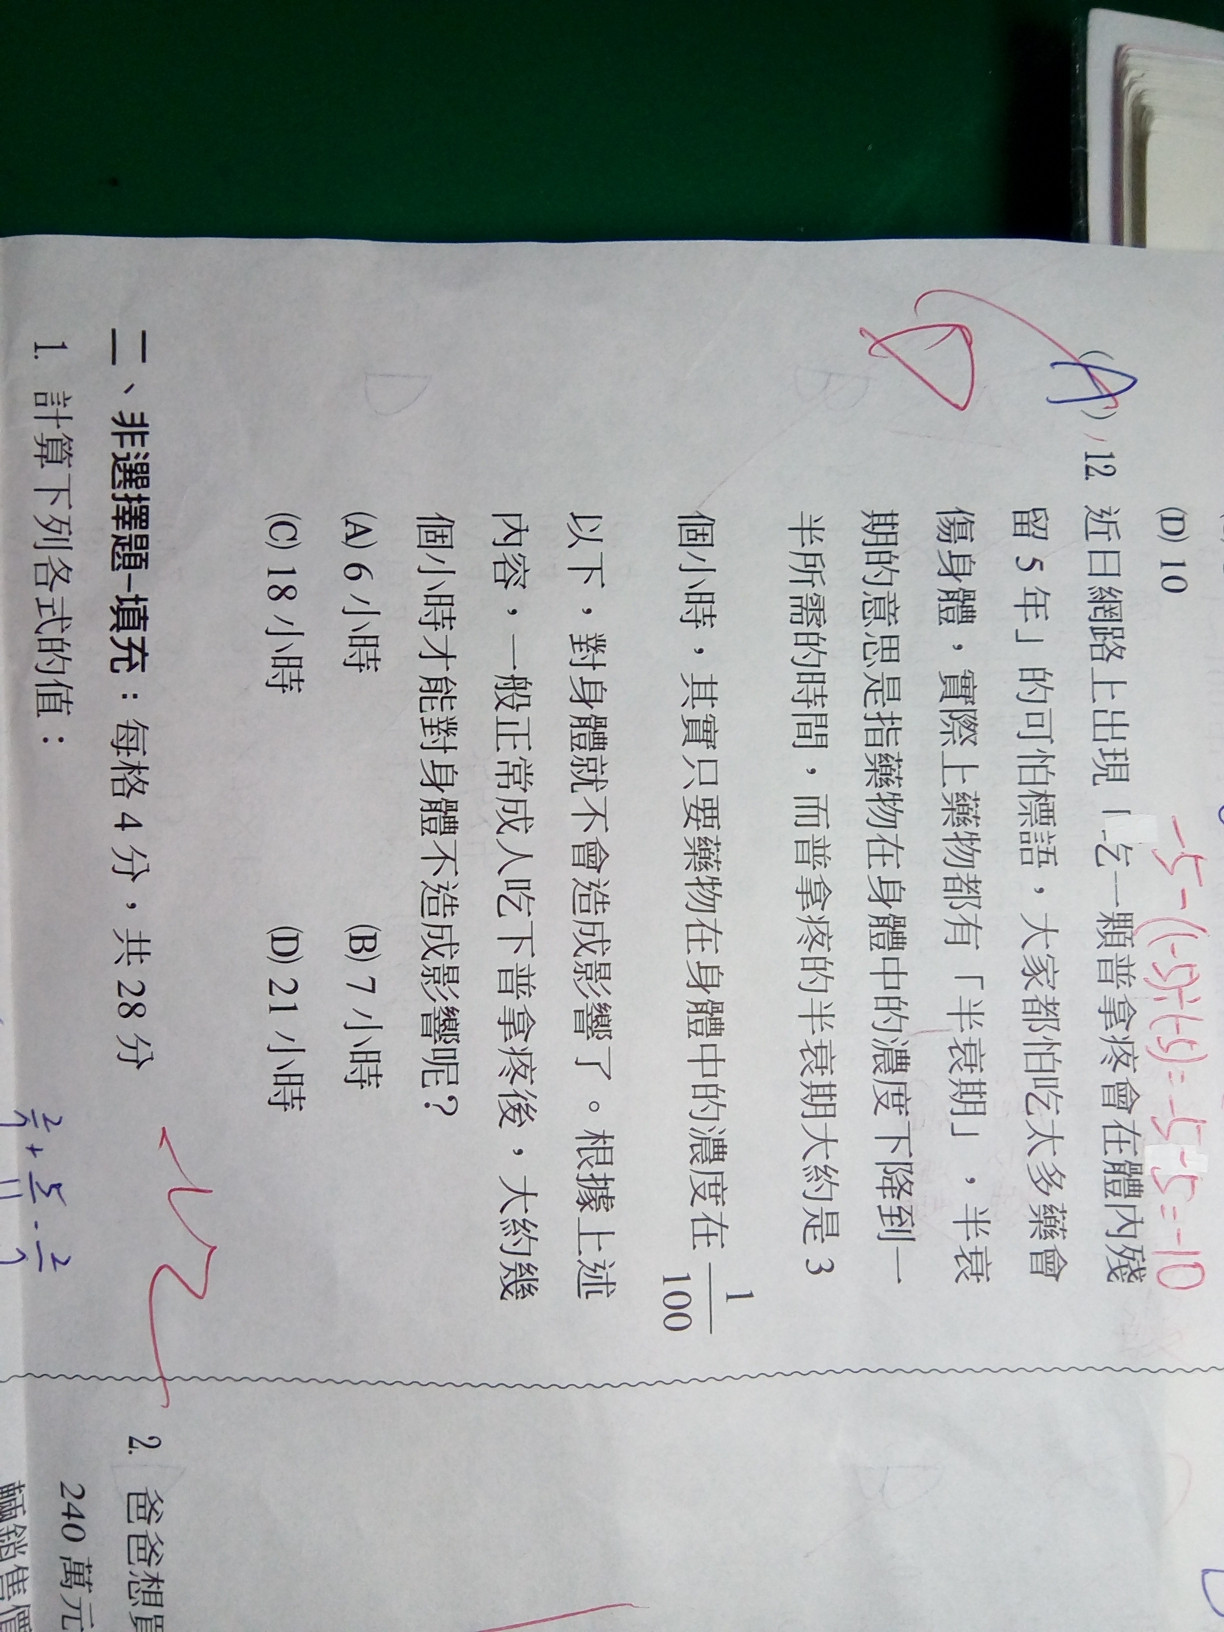 -5-(-5)÷(-5)=-5-5=-10
(D) 10
(A) 12. 近日網路上出現「吃一顆普拿疼會在體內殘
留 5 年」的可怕標語，大家都怕吃太多藥會
傷身體，實際上藥物都有「半衰期」，半衰
D
期的意思是指藥物在身體中的濃度下降到一
半所需的時間，而普拿疼的半衰期大約是 3
個小時，其實只要藥物在身體中的濃度在 1/100
以下，對身體就不會造成影響了。根據上述
內容，一般正常成人吃下普拿疼後，大約幾
個小時才能對身體不造成影響呢？
(A) 6 小時 (B) 7 小時
(C) 18 小時 (D) 21 小時
二、非選擇題-填充：每格 4 分，共 28 分
1. 計算下列各式的值：
2. 爸爸想買
240 萬元
輛銷售價